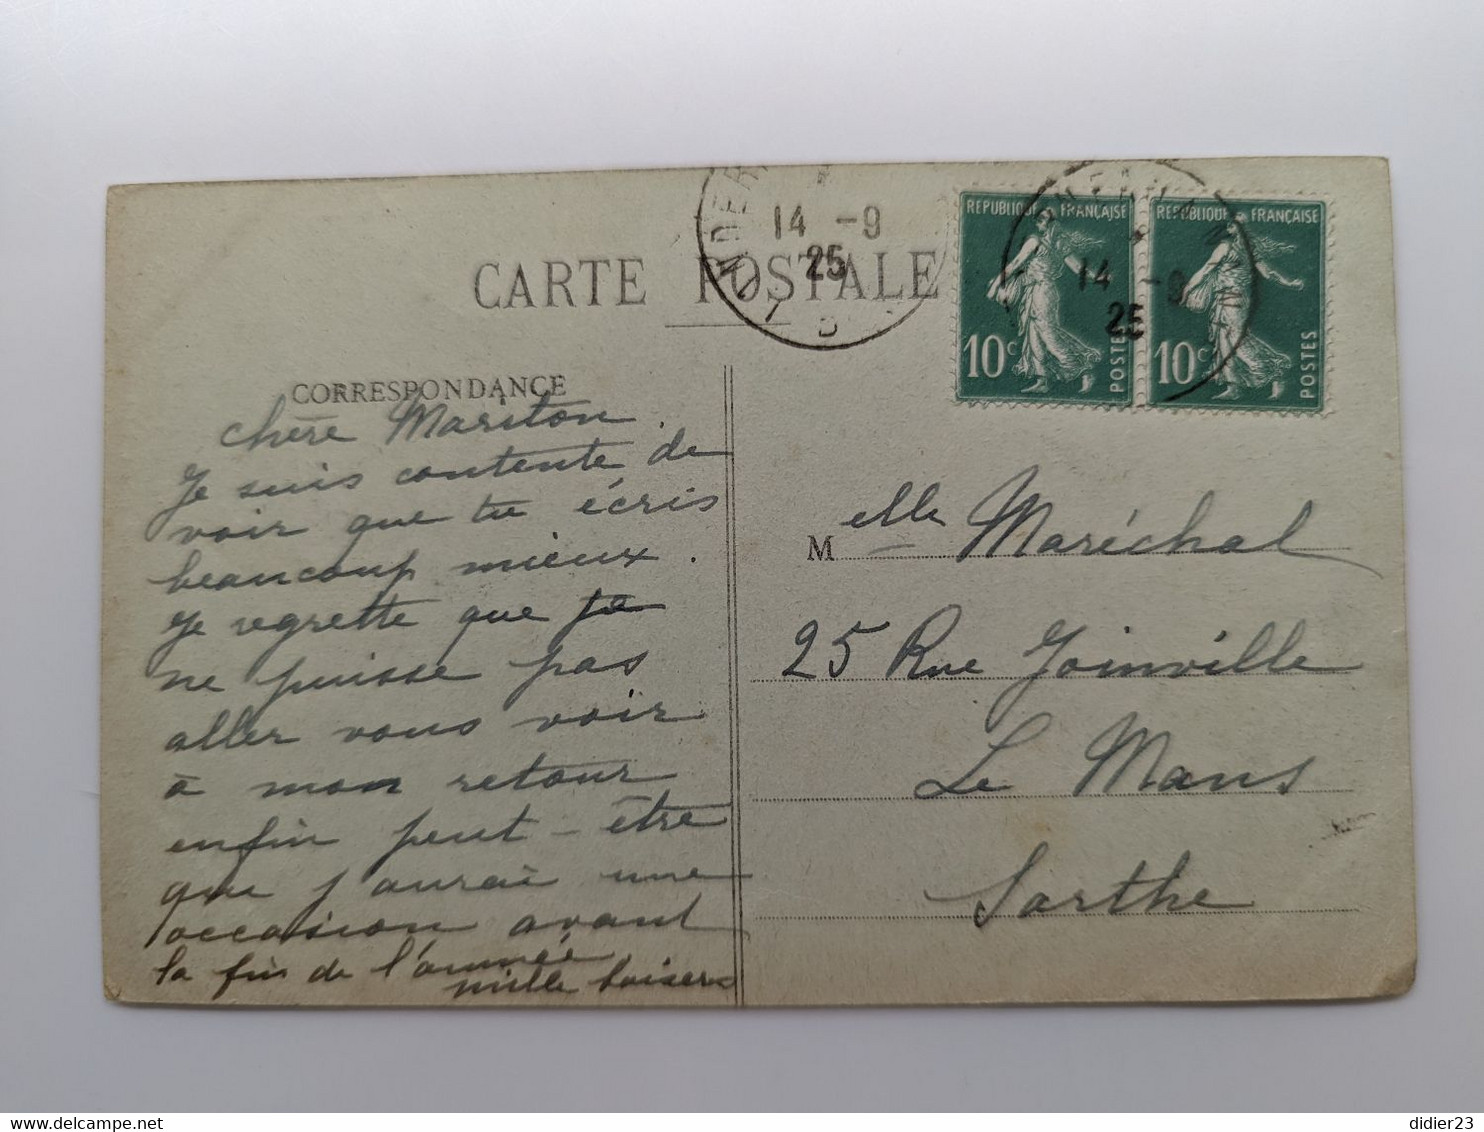 CARTE POSTALE
14 -9
25
RÉPUBLIQUE FRANÇAISE
10c
POSTES
14 -9
25
RÉPUBLIQUE FRANÇAISE
10c
POSTES
CORRESPONDANCE
chère Mariton
Je suis contente de
voir que tu écris
beaucoup mieux.
Je regrette que je
ne puisse pas
aller vous voir
à mon retour
enfin peut-être
que j'aurai une
occasion avant
la fin de l'année
mille baisers
Melle Maréchal
25 Rue Joinville
Le Mans
Sarthe
delcampe.net
didier23